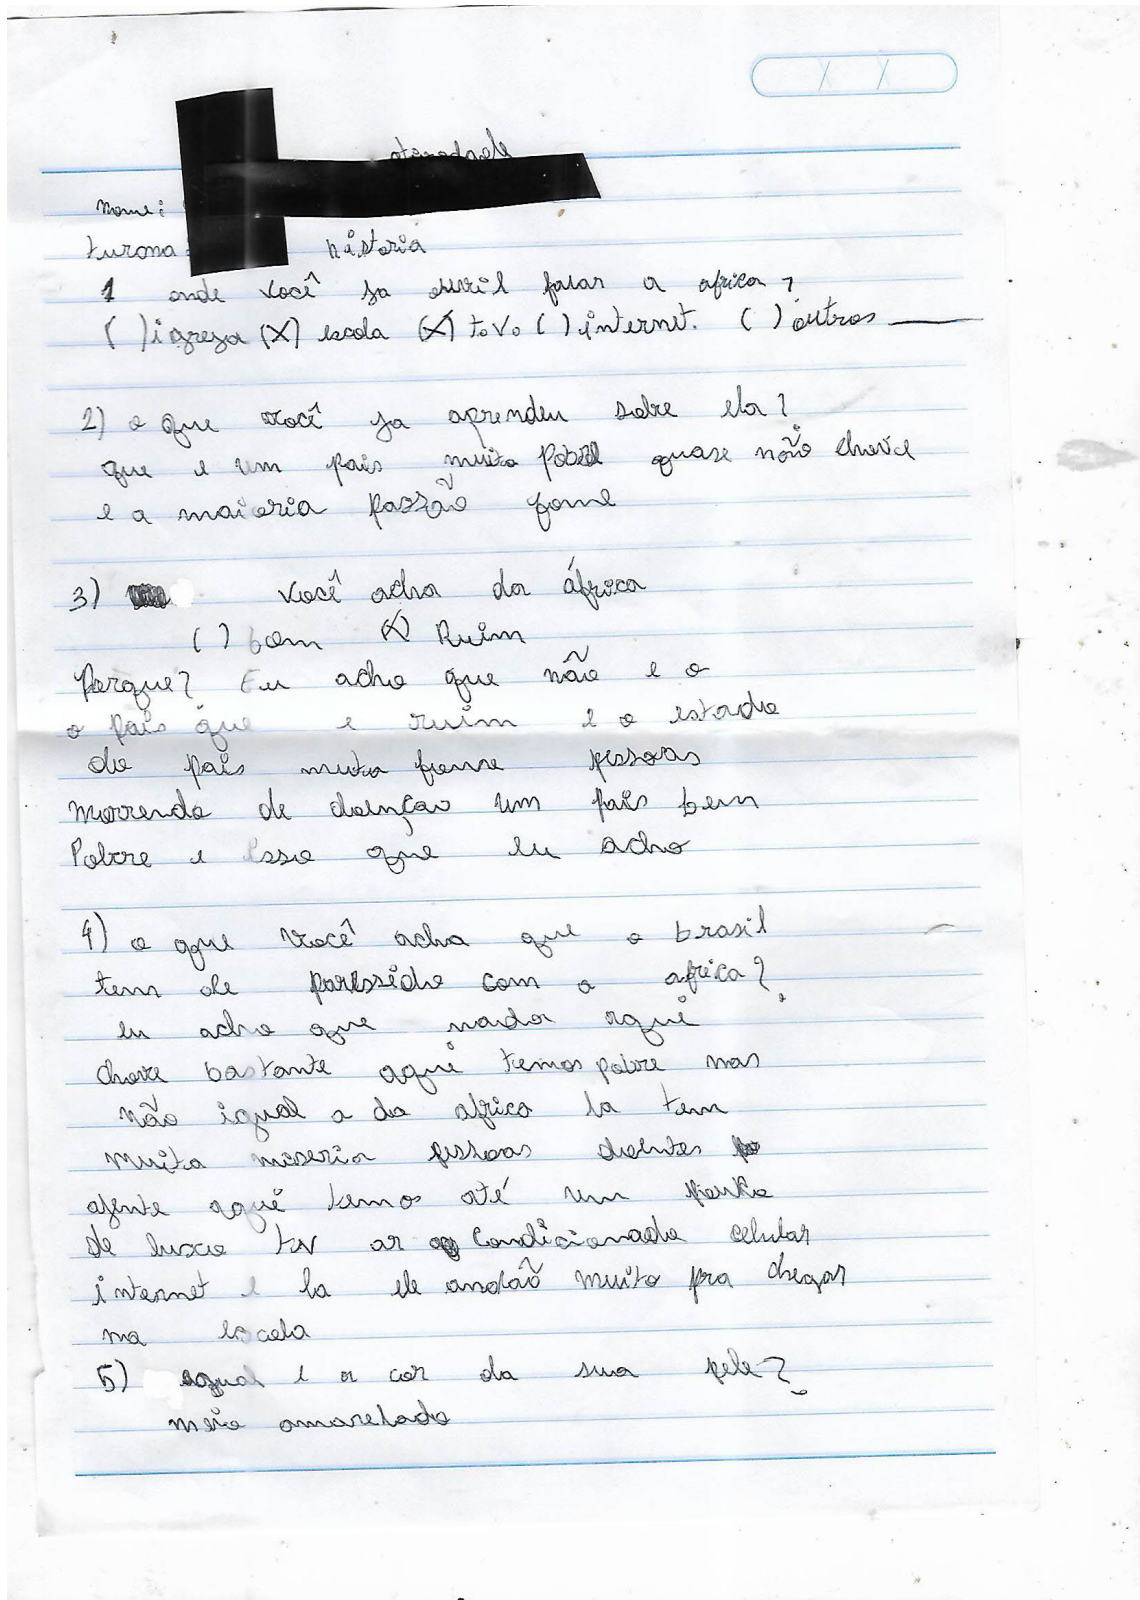 atividade
Nome:
turma historia
1 onde você ja ouvil falar a africa?
( ) igreja (X) escola (X) t.v. ( ) internet. ( ) outros
2) o que você ja aprendeu sobre ela?
que e um pais muito pobre quase não chove
e a maioria passão fome
3) você acha da áfrica
( ) bom (X) Ruim
Porque? Eu acho que não e o
o pais que e ruim e o estado
do pais muita fome pessoas
morrendo de doenças um pais bem
Pobre e isso que eu acho
4) o que você acha que o brasil
tem de paressido com a africa?
eu acho que nada aqui
chove bastante aqui temos pobre mas
não igual a da africa la tem
muita miseria pessoas doentes
agente aqui temos até um pouko
de luxo tv ar condicionado celular
internet e la ele andão muito pra chegar
na escola
5) qual e a cor da sua pele?
meio amarelado